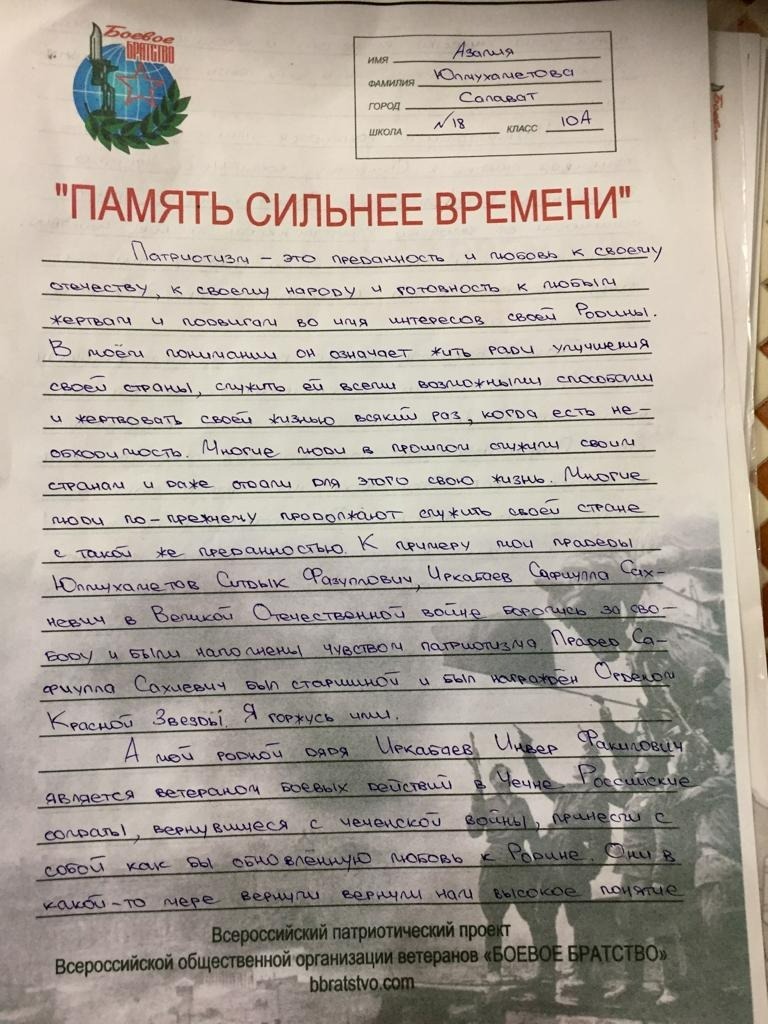 Боевое
БРАТСТВО
ИМЯ Азалия
ФАМИЛИЯ Юлмухаметова
ГОРОД Салават
ШКОЛА №18 КЛАСС 10А
"ПАМЯТЬ СИЛЬНЕЕ ВРЕМЕНИ"
Патриотизм – это преданность и любовь к своему
отечеству, к своему народу и готовность к любым
жертвам и подвигам во имя интересов своей Родины.
В моём понимании он означает жить ради улучшения
своей страны, служить ей всеми возможными способами
и жертвовать своей жизнью всякий раз, когда есть не-
обходимость. Многие люди в прошлом служили своим
странам и даже отдали для этого свою жизнь. Многие
люди по-прежнему продолжают служить своей стране
с такой же преданностью. К примеру мои прадеды
Юлмухаметов Ситдык Фазуллович, Иркабаев Сафиулла Сах-
иевич в Великой Отечественной войне боролись за сво-
боду и были наполнены чувством патриотизма. Прадед Са-
фиулла Сахиевич был старшиной и был награждён Орденом
Красной Звезды. Я горжусь ими.
А мой родной дядя Иркабаев Инвер Факилович
является ветераном боевых действий в Чечне. Российские
солдаты, вернувшиеся с чеченской войны, принесли с
собой как бы обновлённую любовь к Родине. Они в
какой-то мере вернули вернули нам высокое понятие
Всероссийский патриотический проект
Всероссийской общественной организации ветеранов «БОЕВОЕ БРАТСТВО»
bbratstvo.com